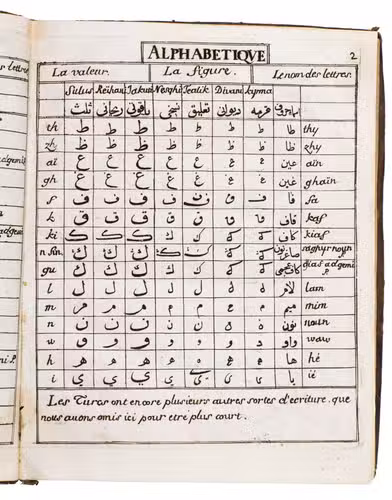 ALPHABETIQVE
2
La valeur. La figure. Le nom des lettres.
Sulus Reihani Iakuti Neschi Tealik Divani kyrma
ثلث ريحانى ياقوتى نسخى تعليق ديوانى قرمه
th ط ط ط ط ط ط ط طا thy
zh ظ ظ ظ ظ ظ ظ ظ ظا zhy
aï ع ع ع ع ع ع ع عين aïn
gh غ غ غ غ غ غ غ غين ghaïn
f ف ف ف ف ف ف ف فا fa
k ق ق ق ق ق ق ق قاف kaf
ki ك ك ك ك ك ك ك كاف kiaf
n fin. ك ك ك ك ك ك ك صاغر نون saghyr noun
gu ك ك ك ك ك ك ك كاف عجمى
l ل ل ل ل ل ل ل لام lam
m م م م م م م م ميم mim
n ن ن ن ن ن ن ن نون noun
w و و و و و و و واو waw
h ه ه ه ه ه ه ه ها hé
i ي ي ي ي ي ي ي يا ïé
Les Turcs ont encore plusieurs autres sortes d'ecriture, que
nous avons omis ici pour etre plus court.